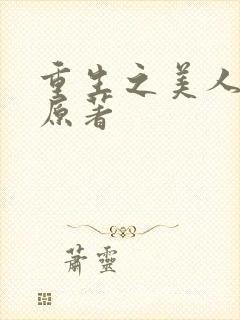 重生之美人
原著
萧靈